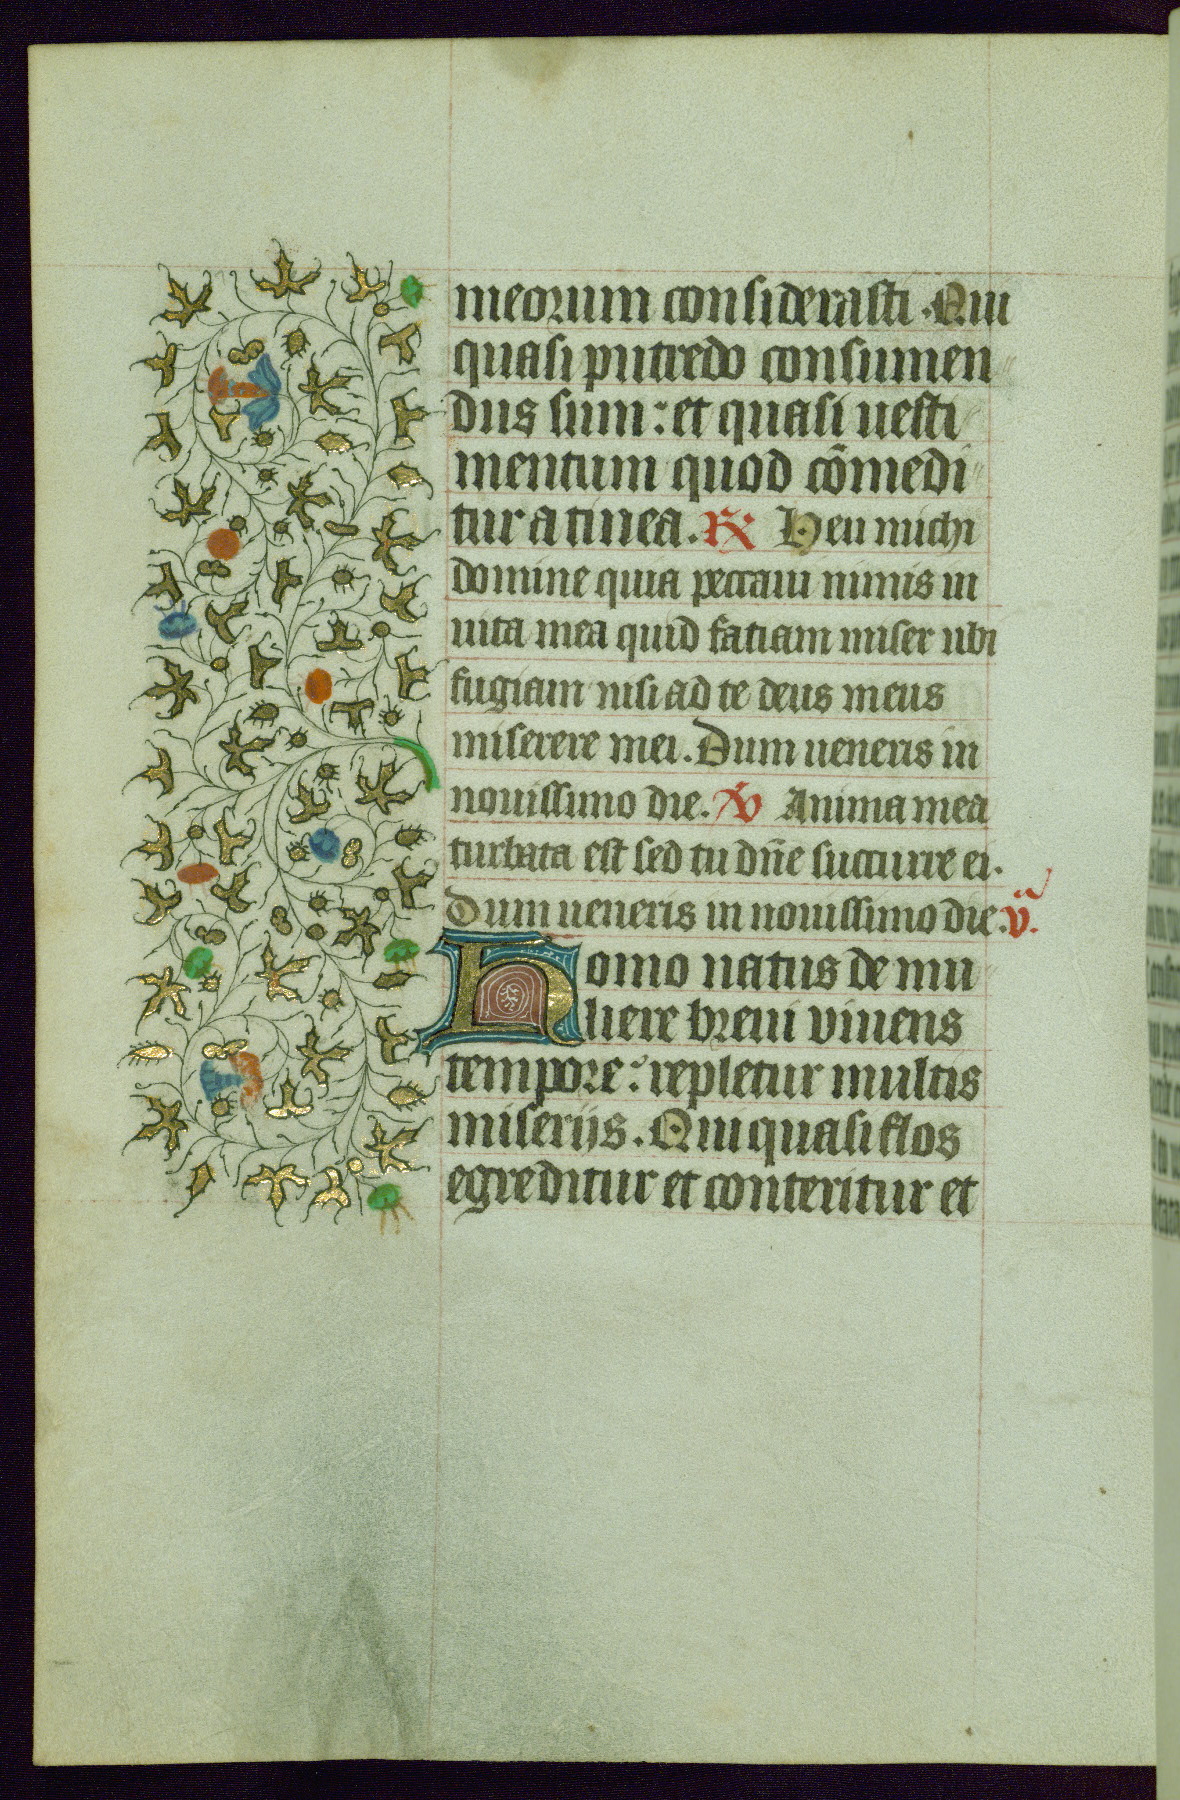 meorum considerasti. Qui
quasi putredo consumen
dus sum: et quasi uesti
mentum quod cōmedi
tur a tinea. R͞x Heu michi
domine quia peccaui nimis in
uita mea quid fatiam miser ubi
fugiam nisi ad te deus meus
miserere mei. Dum ueneris in
nouissimo die. V̄ Anima mea
turbata est sed tu dn̄e succurre ei.
Dum ueneris in nouissimo die. vͣ.
Homo natus de mu
liere breui viuens
tempore: repletur multis
miserijs. Qui quasi flos
egreditur et conteritur et